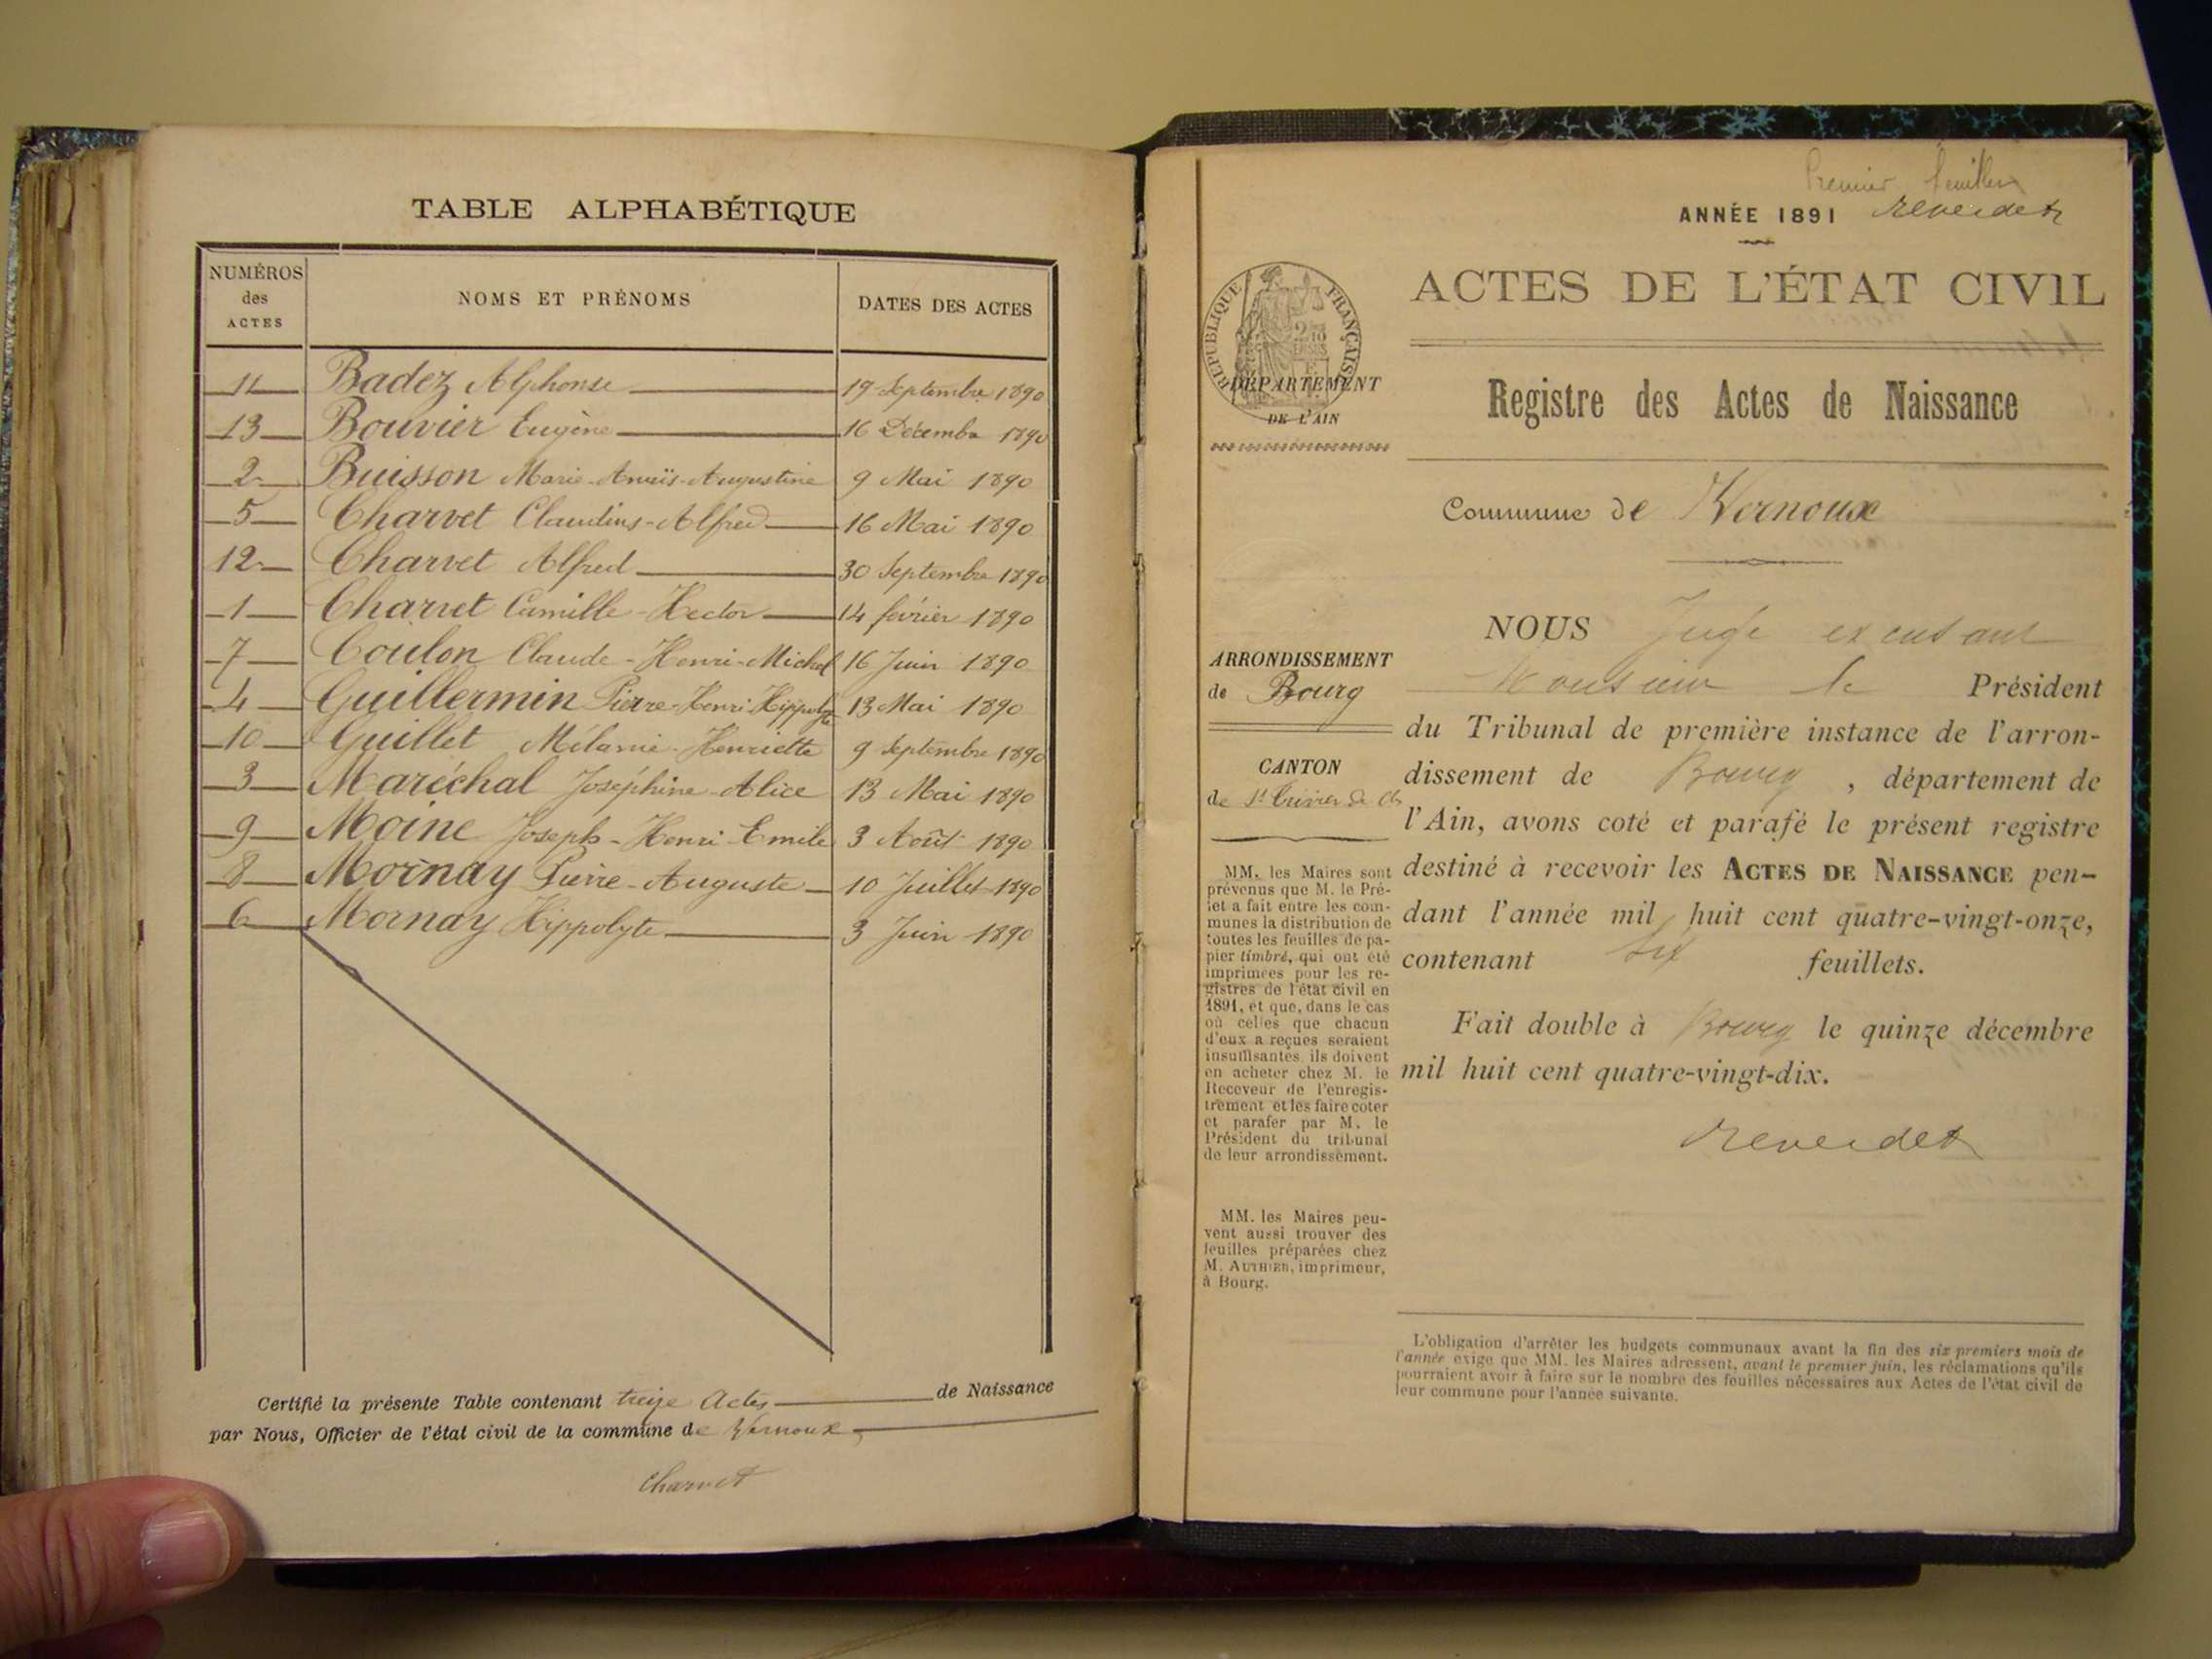 TABLE ALPHABÉTIQUE
NUMÉROS des ACTES NOMS ET PRÉNOMS DATES DES ACTES
11 Badez Alphonse 19 Septembre 1890
13 Bouvier Eugène 16 Décembre 1890
2 Buisson Marie-Anaïs-Augustine 9 Mai 1890
5 Charvet Claudius-Alfred 16 Mai 1890
12 Charvet Alfred 30 Septembre 1890
1 Charvet Camille-Hector 14 février 1890
7 Coulon Claude-Henri-Michel 16 Juin 1890
4 Guillermin Pierre-Henri-Hippolyte 13 Mai 1890
10 Guillet Mélanie-Henriette 9 Septembre 1890
3 Maréchal Joséphine-Alice 13 Mai 1890
9 Moine Joseph-Henri-Emile 3 Août 1890
8 Mornay Pierre-Auguste 10 Juillet 1890
6 Mornay Hippolyte 3 Juin 1890
Certifié la présente Table contenant treize Actes de Naissance
par Nous, Officier de l'état civil de la commune de Vernoux
Charvet
Premier feuillet
ANNÉE 1891 Reverdet
ACTES DE L'ÉTAT CIVIL
RÉPUBLIQUE FRANÇAISE
DÉPARTEMENT
DE L'AIN
Registre des Actes de Naissance
Commune de Vernoux
ARRONDISSEMENT
de Bourg
CANTON
de St Trivier de
MM. les Maires sont
prévenus que M. le Pré-
fet a fait entre les com-
munes la distribution de
toutes les feuilles de pa-
pier timbré, qui ont été
imprimées pour les re-
gistres de l'état civil en
1891, et que, dans le cas
où celles que chacun
d'eux a reçues seraient
insuffisantes, ils doivent
en acheter chez M. le
Receveur de l'enregis-
trement et les faire coter
et parafer par M. le
Président du tribunal
de leur arrondissement.
MM. les Maires peu-
vent aussi trouver des
feuilles préparées chez
M. AUTHIER, imprimeur,
à Bourg.
NOUS Juge excusant
Monsieur le Président
du Tribunal de première instance de l'arron-
dissement de Bourg, département de
l'Ain, avons coté et parafé le présent registre
destiné à recevoir les ACTES DE NAISSANCE pen-
dant l'année mil huit cent quatre-vingt-onze,
contenant six feuillets.
Fait double à Bourg le quinze décembre
mil huit cent quatre-vingt-dix.
Reverdet
L'obligation d'arrêter les budgets communaux avant la fin des six premiers mois de
l'année exige que MM. les Maires adressent, avant le premier juin, les réclamations qu'ils
pourraient avoir à faire sur le nombre des feuilles nécessaires aux Actes de l'état civil de
leur commune pour l'année suivante.